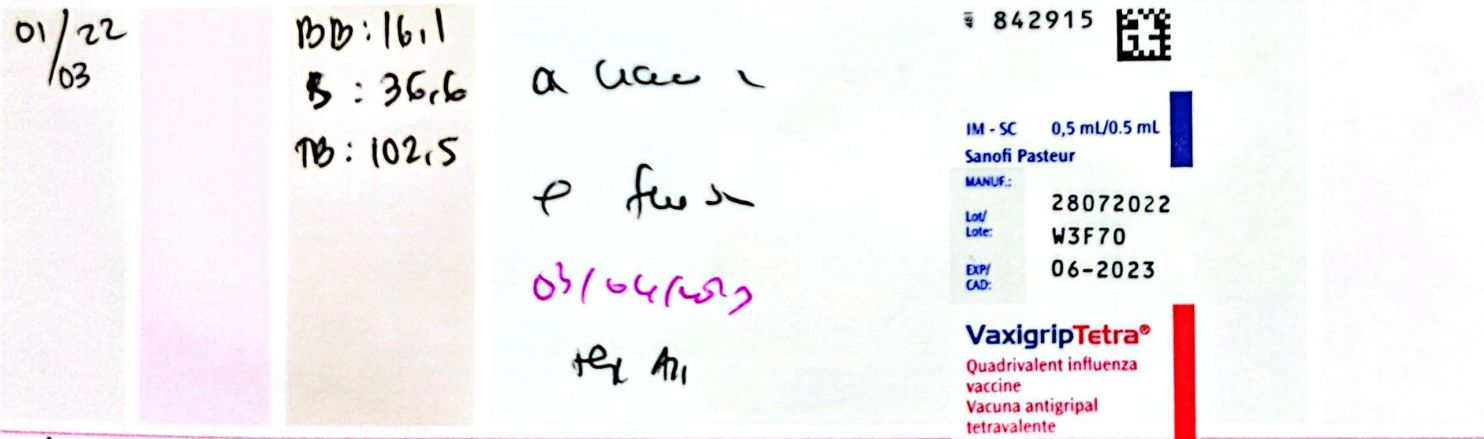 01/22
/03
BB: 16,1
B : 36,6
TB: 102,5
03/04/2023
842915
IM - SC 0,5 mL/0.5 mL
Sanofi Pasteur
MANUF.:
28072022
Lot/
Lote:
W3F70
EXP/
CAD:
06-2023
VaxigripTetra®
Quadrivalent influenza
vaccine
Vacuna antigripal
tetravalente